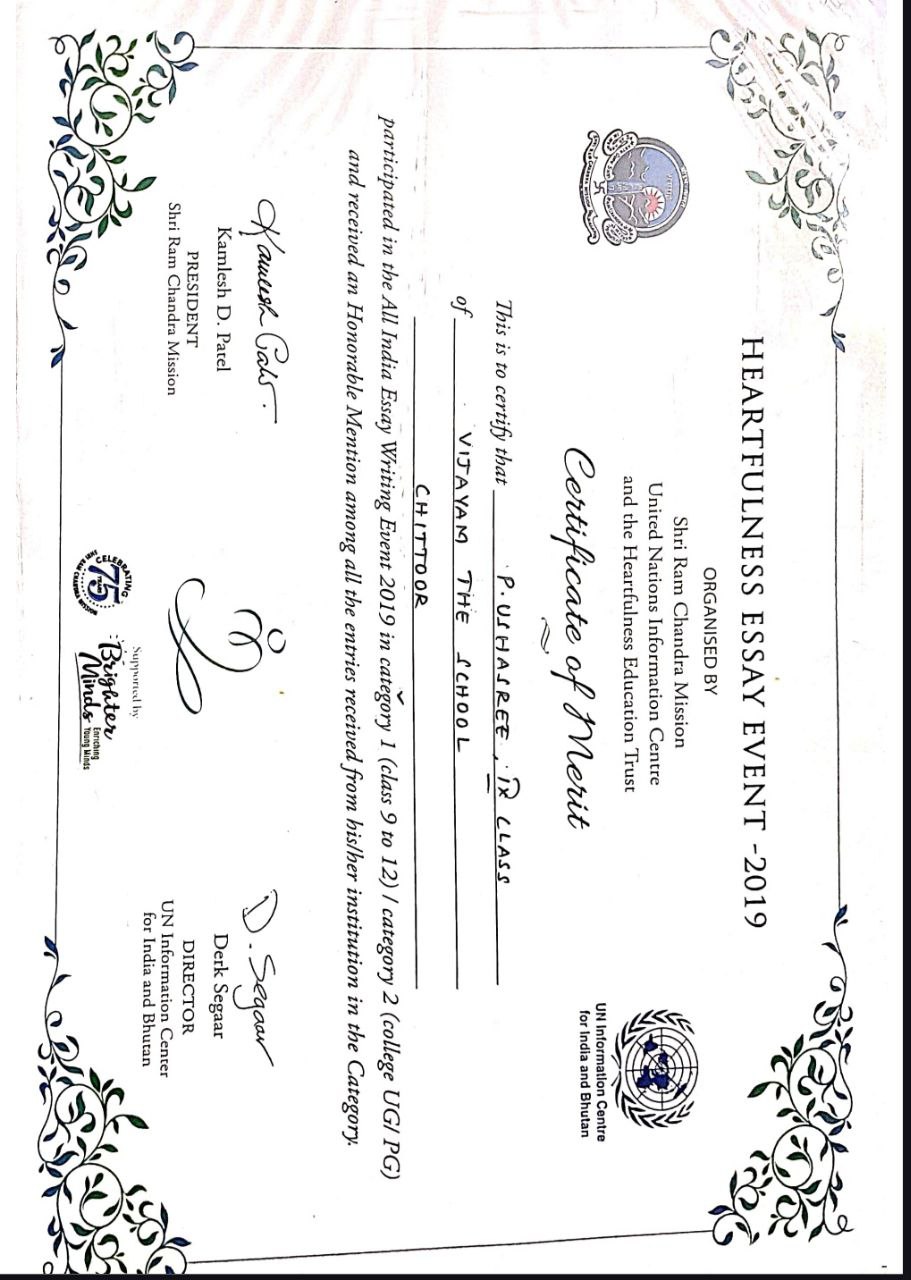 HEARTFULNESS ESSAY EVENT -2019
ORGANISED BY
Shri Ram Chandra Mission
United Nations Information Centre
and the Heartfulness Education Trust
UN Information Centre
for India and Bhutan
Certificate of Merit
This is to certify that P. USHASREE, IX CLASS
of VIJAYAM THE SCHOOL
CHITTOOR
participated in the All India Essay Writing Event 2019 in category 1 (class 9 to 12) / category 2 (college UG/ PG)
and received an Honorable Mention among all the entries received from his/her institution in the Category.
Kamlesh D. Patel
PRESIDENT
Shri Ram Chandra Mission
CELEBRATING
75
YEARS
Supported by
Brighter
Minds
Enriching
Young Minds
D. Segaar
Derk Segaar
DIRECTOR
UN Information Center
for India and Bhutan